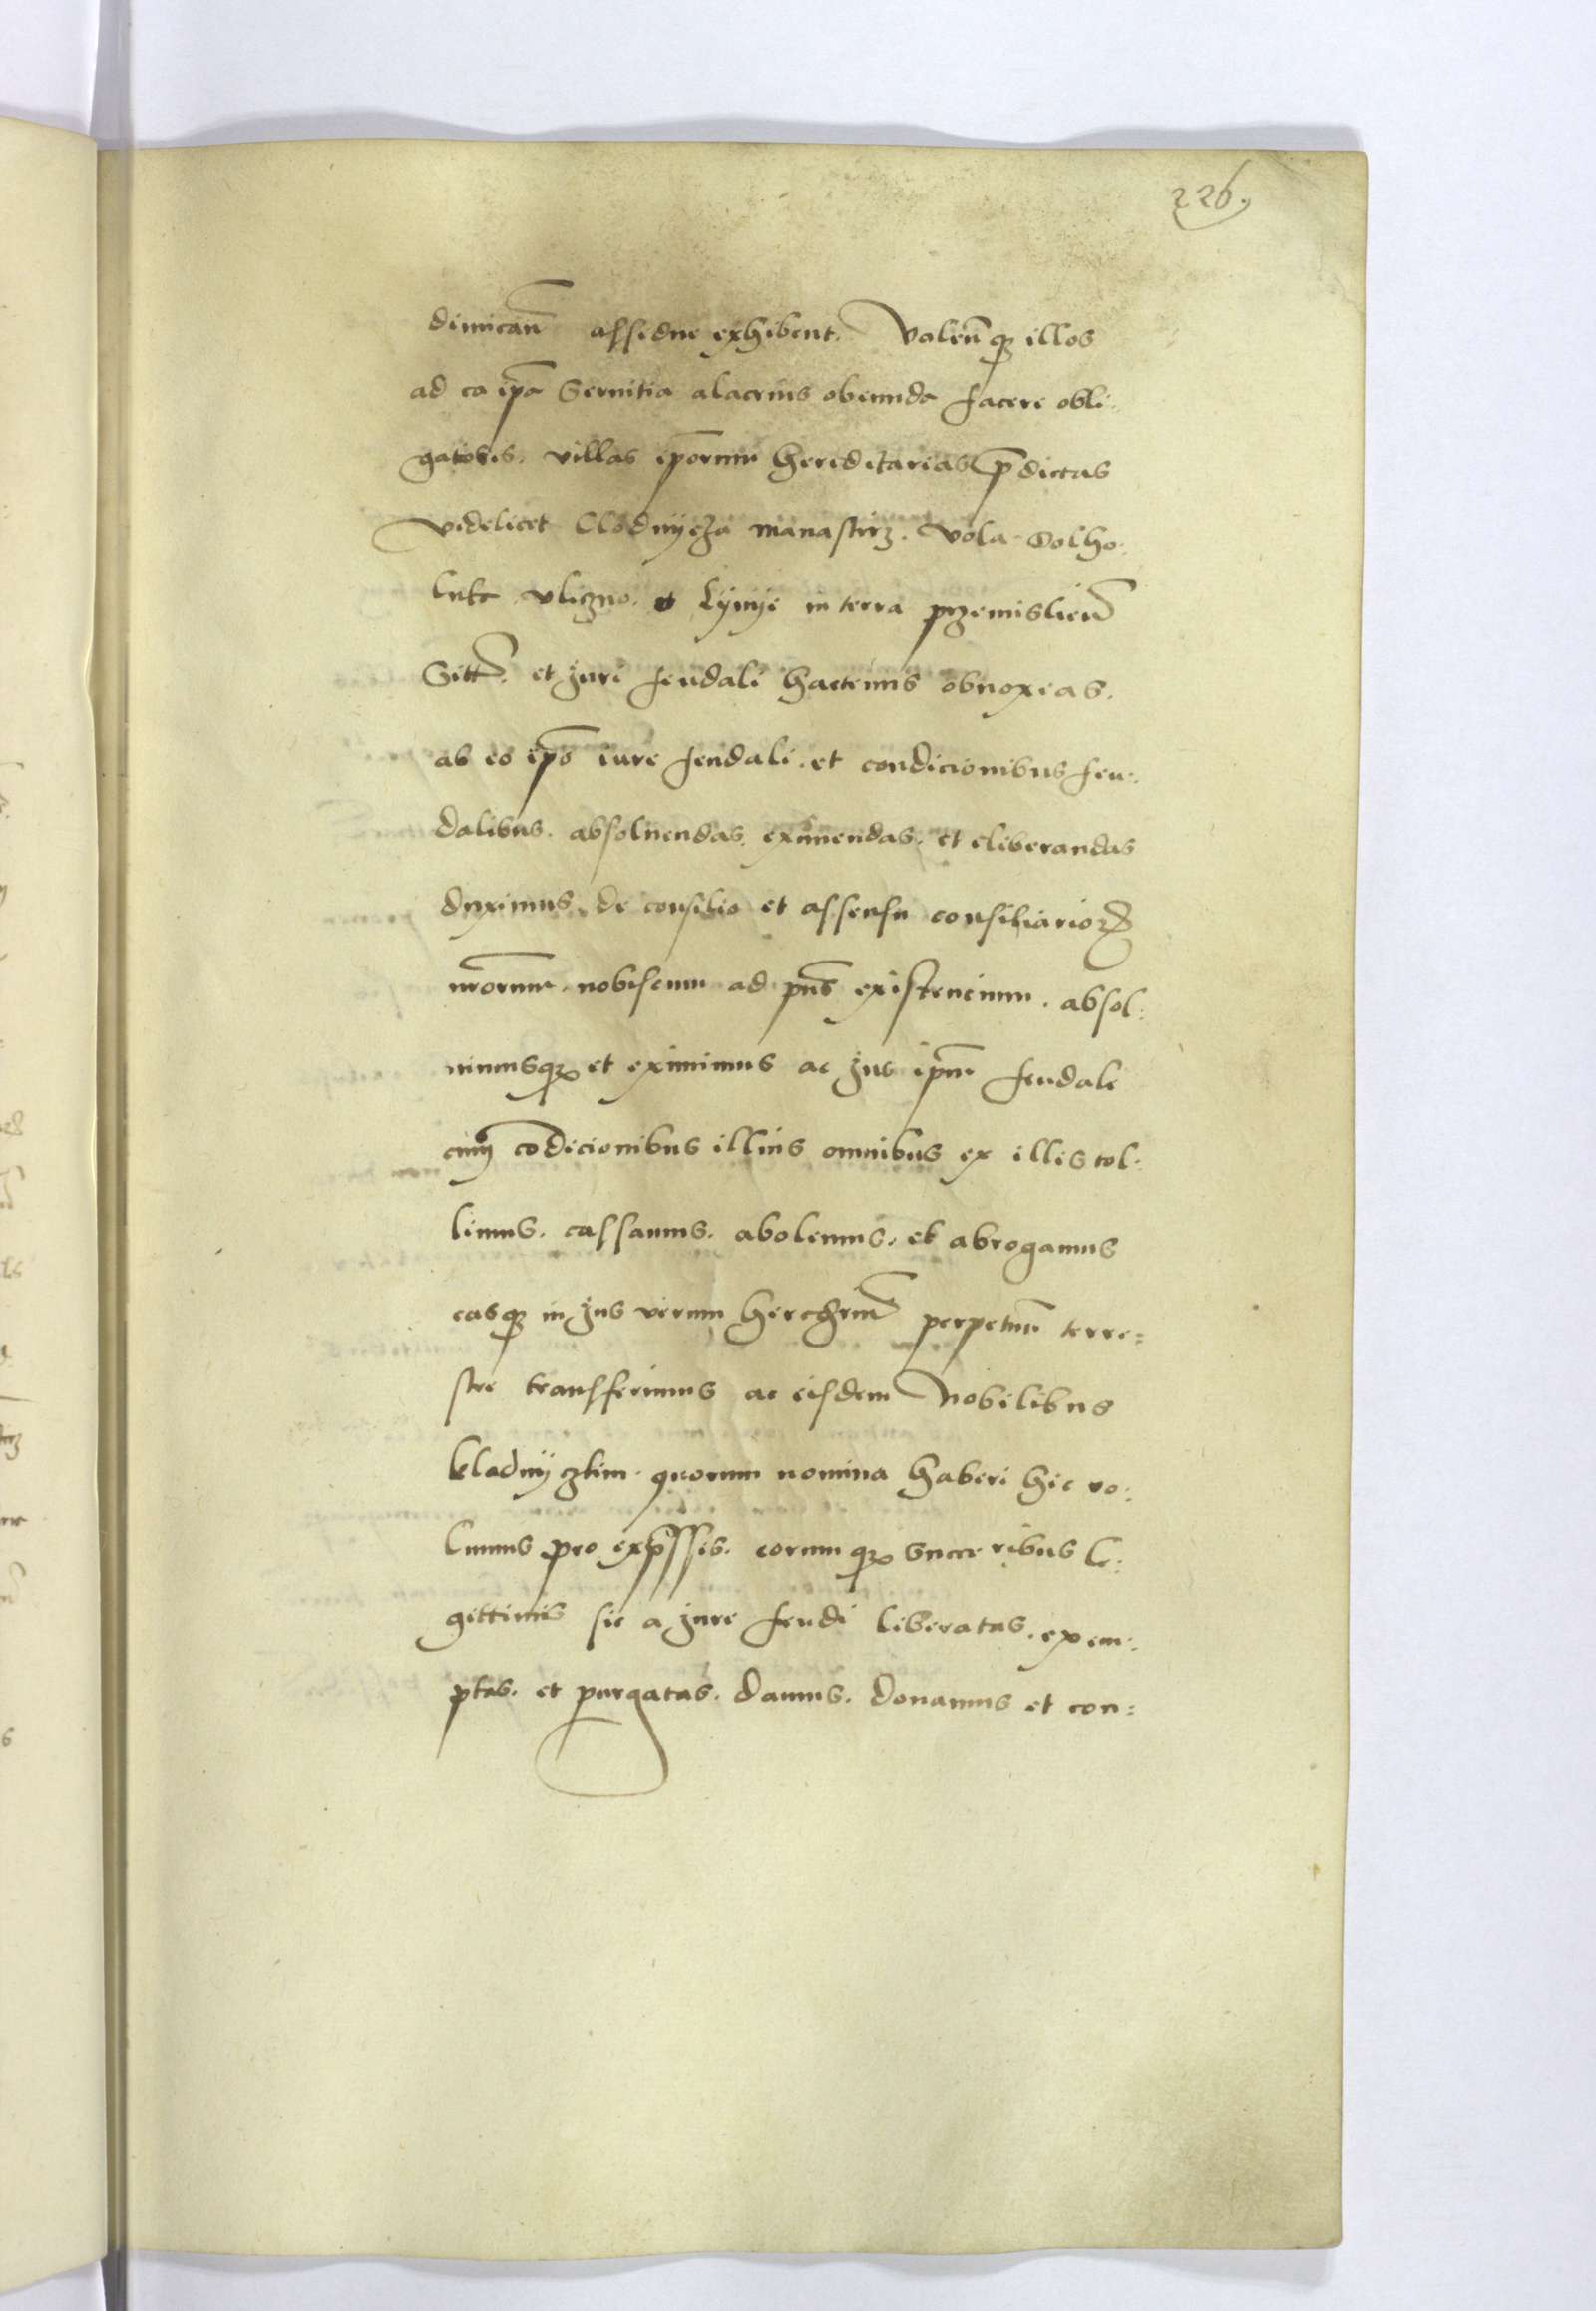 226.
dimican̄ assidue exhibent. Volen̄ qz illos
ad ea ip̄a Servitia alacrius obeunda facere obli:
gatores. villas ip̄orum hereditarias p̄dictas
videlicet Clodnycza manastirz. vola Dolho:
luka vliczno. et Lynye in terra przemislien̄
Sitt̄. et Juri feudali hactenus obnoxeas.
ab eo ip̄o iure feudali. et condicionibus feu:
dalibus. absoluendas. eximendas. et eliberandas
duximus. de consilio et assensu consiliarioꝝ
nr̄orum. nobiscum ad pn̄s existencium. absol:
uimusqz et eximimus ac Jus ip̄m feudale
cum cōdicionibus illius omnibus ex illis tol:
limus. cassamus. abolemus. et abrogamus
easqz in Jus verum perpetuū terre=
stre transferimus ac eisdem Nobilibus
kladnyczkim. quorum nomina haberi hic vo:
lumus pro exp̄ssis. eorumqz succeribus le:
gittimis sic a Jure feudi liberatas. exem:
ptas. et purgatas. damus. donamus et con: